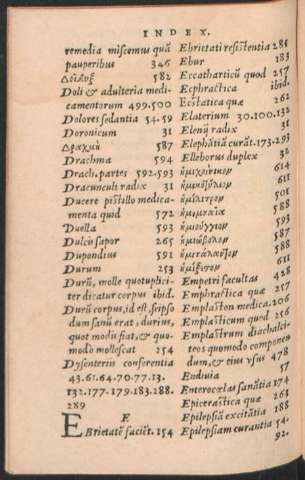 INDEX.
remedia miscemus quã
pauperibus 346
582
Doli & adulteria medi-
camentorum 499.500
Dolores sedantia 54.59
Doronicum 31
Δραχμὴ 587
Drachma 594
Drach. partes 592.593
Dracunculi radix 31
Ducere pistillo medica-
menta quid 572
Duella 593
Dulcis sapor 265
Dupondius 591
Durum 253
Durũ, molle quotuplici-
ter dicatur corpus ibid.
Durũ corpus, id est, seipso
dum sanũ erat, durius,
quot modis fiat, & quo-
modo mollescat 254
Dysenteriis conferentia
43.61.64.70.77.13.
132.177.179.183.288.
289
E
EBrietatẽ faciũt. 154
Ebrietati resistentia 288
Ebur 183
Eccatharticũ quod 257
Ecphractica ibid.
Ecstatica quæ 262
Elaterium 30.100.132
Elenij radix 31
Elephãtiã curãt. 173.293
Elleborus duplex 32
614
611
ἡμίλιτρον 501
ἡμιμναῖα 588
593
ἡμιώβολον 587
588
611
ἡμίξεστον
Empetri facultas 428
Emphractica quæ 257
Emplaston medica. 206
Emplasticum quod 256
Emplastrum diachalci-
teos quomodo componen
dum, & eius vsus 478
Endiuia 57
Enterocœlas sanãtia 174
Epicerastica quæ 263
Epilepsiã excitãtia 188
Epilepsiam curantia 54.
92.